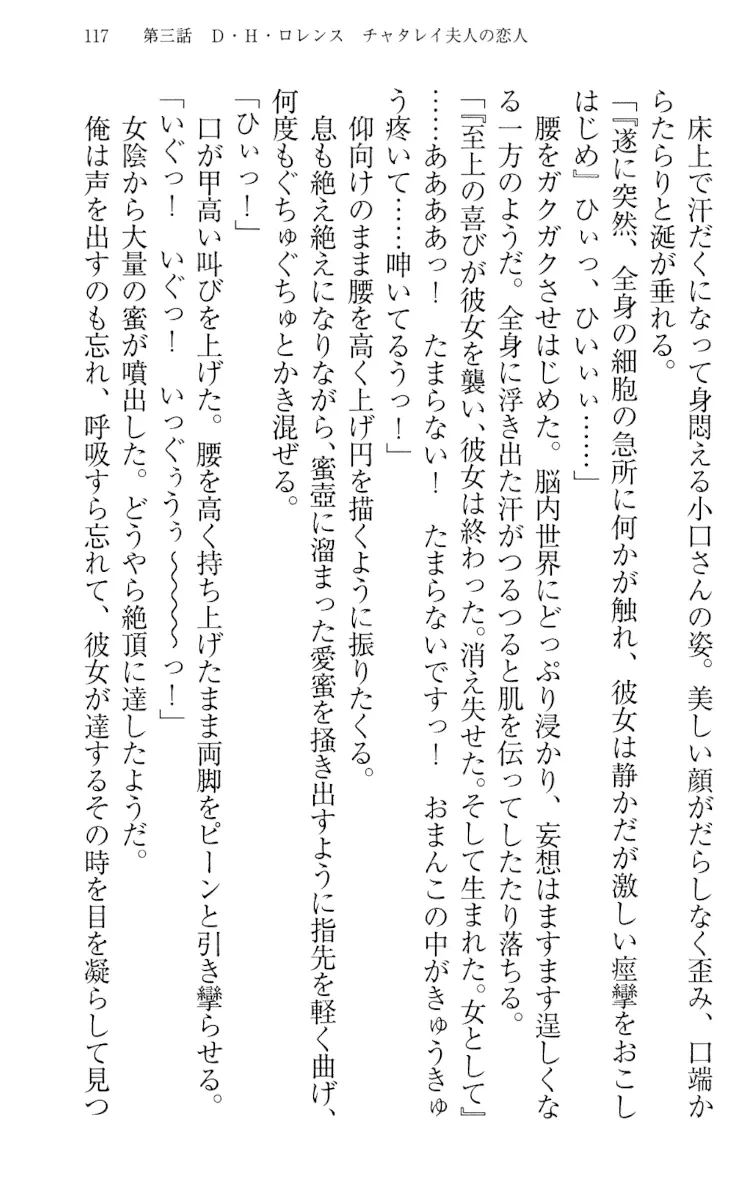 117　第三話　D・H・ロレンス　チャタレイ夫人の恋人
床上で汗だくになって身悶える小口さんの姿。美しい顔がだらしなく歪み、口端か
らたらりと涎が垂れる。
「『遂に突然、全身の細胞の急所に何かが触れ、彼女は静かだが激しい痙攣をおこし
はじめ』ひぃっ、ひいぃぃ……」
腰をガクガクさせはじめた。脳内世界にどっぷり浸かり、妄想はますます逞しくな
る一方のようだ。全身に浮き出た汗がつるつると肌を伝ってしたたり落ちる。
「『至上の喜びが彼女を襲い、彼女は終わった。消え失せた。そして生まれた。女として』
……ああああっ！　たまらない！　たまらないですっ！　おまんこの中がきゅうきゅ
う疼いて……呻いてるうっ！」
仰向けのまま腰を高く上げ円を描くように振りたくる。
息も絶え絶えになりながら、蜜壺に溜まった愛蜜を掻き出すように指先を軽く曲げ、
何度もぐちゅぐちゅとかき混ぜる。
「ひぃっ！」
口が甲高い叫びを上げた。腰を高く持ち上げたまま両脚をピーンと引き攣らせる。
「いぐっ！　いぐっ！　いっぐぅうぅ～～～～～っ！」
女陰から大量の蜜が噴出した。どうやら絶頂に達したようだ。
俺は声を出すのも忘れ、呼吸すら忘れて、彼女が達するその時を目を凝らして見つ